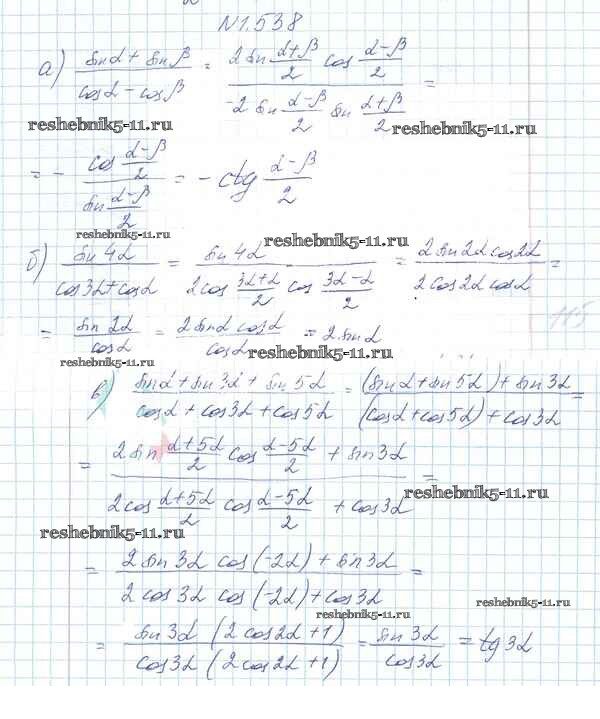 №1.538
а) (sinα + sinβ)/(cosα − cosβ) = (2 sin (α+β)/2 cos (α−β)/2)/(−2 sin (α−β)/2 sin (α+β)/2) =
reshebnik5-11.ru reshebnik5-11.ru
= − (cos (α−β)/2)/(sin (α−β)/2) = −ctg (α−β)/2
reshebnik5-11.ru
reshebnik5-11.ru
б) (sin4α)/(cos3α+cosα) = (sin4α)/(2cos (3α+α)/2 cos (3α−α)/2) = (2 sin2α cos2α)/(2 cos2α cosα) =
= (sin2α)/(cosα) = (2 sinα cosα)/(cosα) = 2 sinα
115
reshebnik5-11.ru reshebnik5-11.ru
в) (sinα + sin3α + sin5α)/(cosα + cos3α + cos5α) = ((sinα + sin5α) + sin3α)/((cosα + cos5α) + cos3α) =
= (2 sin (α+5α)/2 cos (α−5α)/2 + sin3α)/(2cos (α+5α)/2 cos (α−5α)/2 + cos3α) =
reshebnik5-11.ru
reshebnik5-11.ru
= (2 sin3α cos(−2α) + sin3α)/(2 cos3α cos(−2α) + cos3α) =
reshebnik5-11.ru reshebnik5-11.ru
= (sin3α (2cos2α+1))/(cos3α (2cos2α+1)) = (sin3α)/(cos3α) = tg3α